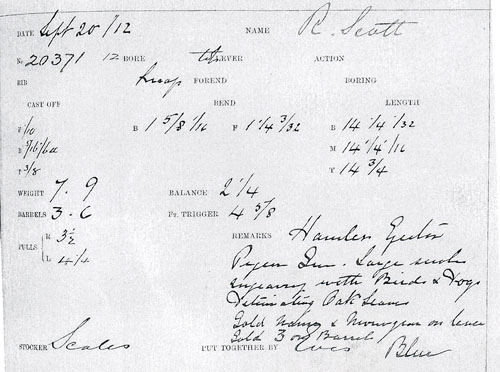 DATE Sept 20/12 NAME R. Scott
No 20371 12 BORE LEVER ACTION
RIB FOREND BORING
CAST OFF BEND LENGTH
F/10 B 1 5/8 1/16 F 1 1/4 3/32 B 14 1/4 1/32
M 14 1/4 1/16
T 3/8 T 14 3/4
WEIGHT 7. 9 BALANCE 2 1/4
BARRELS 3. 6 Fr. TRIGGER 4 5/8
PULLS R 3 1/2 REMARKS Hamless Ejector
L 4 1/4 Pigeon Gun. Large scroll
engraving with Birds & Dogs
Oak Leaves
Gold Name & Monogram on
Gold 3 on Barrel
STOCKER Scales PUT TOGETHER BY Blue